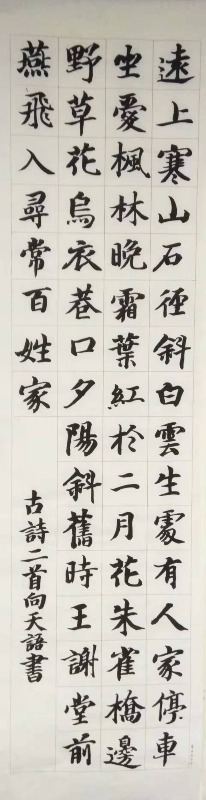 遠上寒山石徑斜白雲生處有人家停車
坐愛楓林晚霜葉紅於二月花朱雀橋邊
野草花烏衣巷口夕陽斜舊時王謝堂前
燕飛入尋常百姓家
古詩二首向天語書